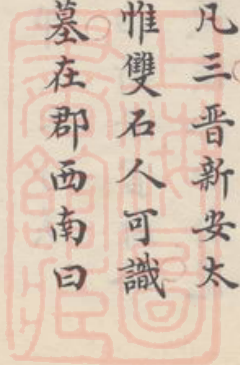 凡三晋新安太
惟雙石人可識
墓在郡西南曰